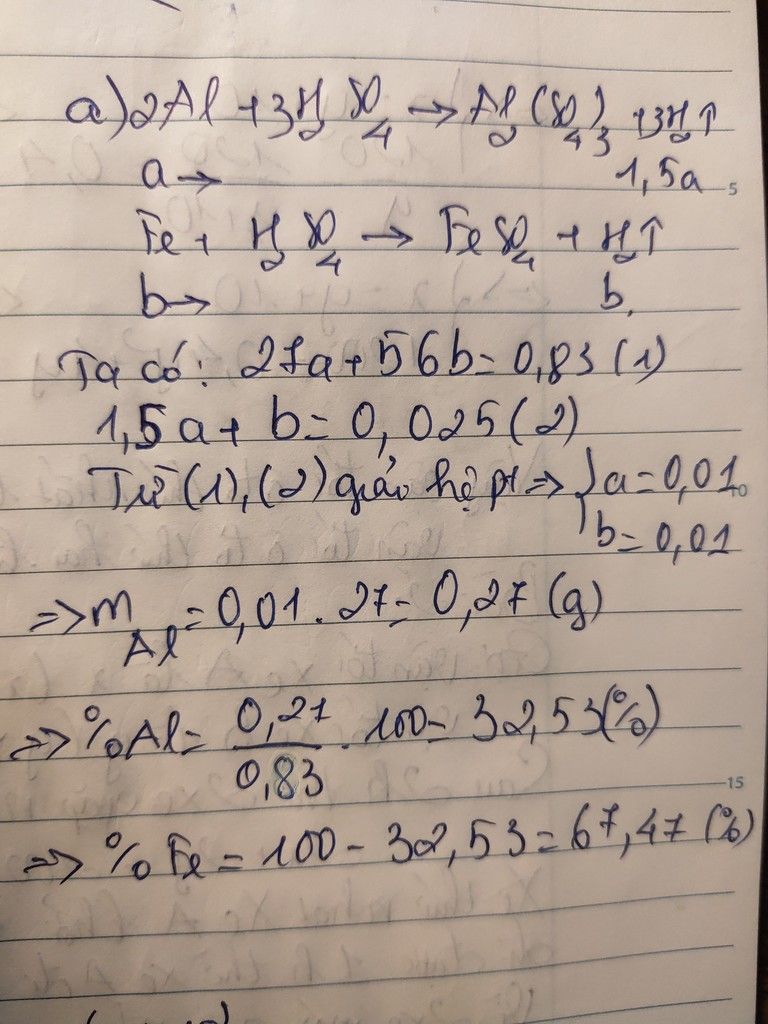 a) 2Al + 3H₂SO₄ → Al₂(SO₄)₃ + 3H₂↑
a → 1,5a
5
Fe + H₂SO₄ → FeSO₄ + H₂↑
b → b.
Ta có: 27a + 56b = 0,83 (1)
1,5a + b = 0,025 (2)
Từ (1), (2) giải hệ pt => { a = 0,01
10
b = 0,01
=> m Al = 0,01 . 27 = 0,27 (g)
=> %Al = 0,27/0,83 . 100 = 32,53 (%)
15
=> %Fe = 100 - 32,53 = 67,47 (%)